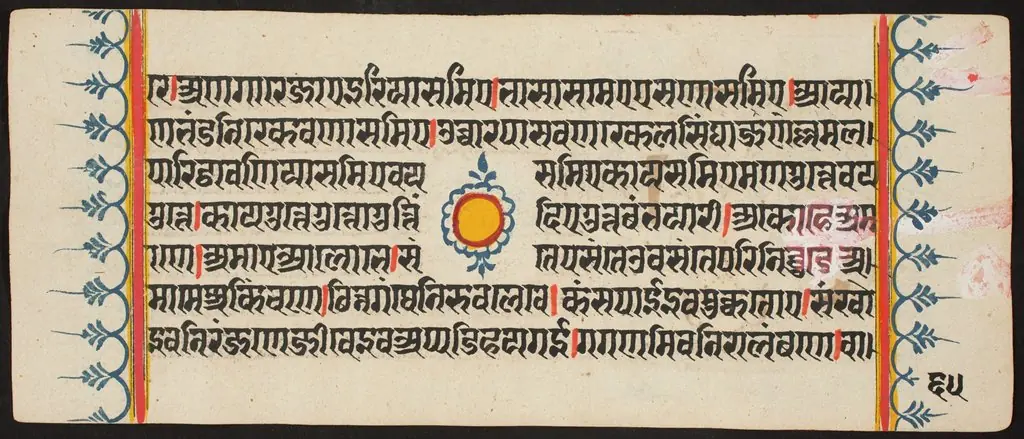 रे।अणगारे जाए इरियासमिए।भासासमिए एसणासमिए।आया
णभंडनिरकेवणासमिए।उच्चारपासवणरकेलसिंघाणजल्लमल
पारिठावणियासमिए वय समिए कायसमिए मणगुत्ते वय
गुत्ते।कायगुत्ते गुत्ते गुत्तिं दिए गुत्तबंभयारी।अकोहे अम
ाणे।अमाए अलोभे।सं ते पसंते उवसंते परिनिव्वुडे अ
अममे अकिंचणे।छिन्नगंथे निरुवलेवे।कंसपाई इव मुक्कतोए।संखो
इव निरंजणे जीवे इव अप्पडिहयगई।गगणमिव निरालंबणे।वा
६५